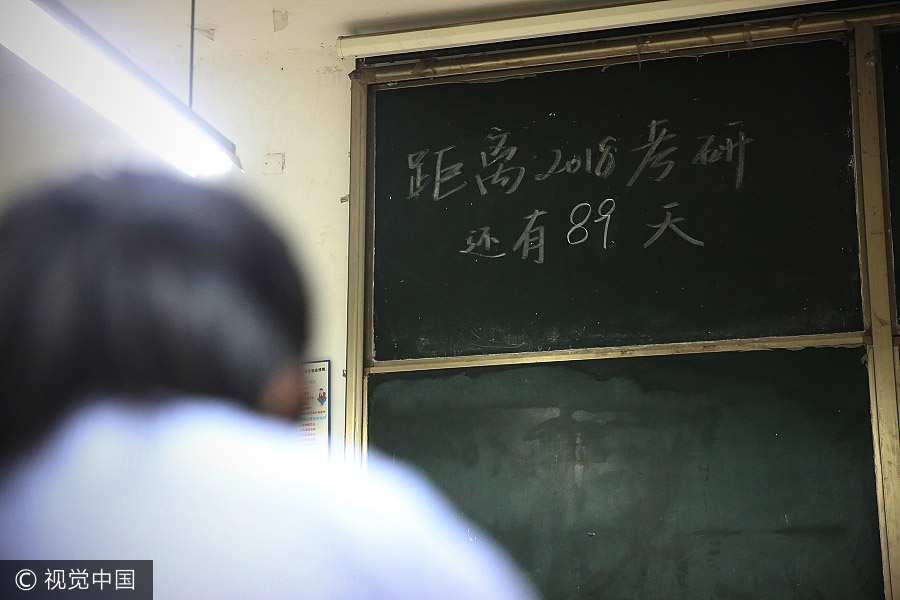 距离2018考研
还有89天
© 视觉中国